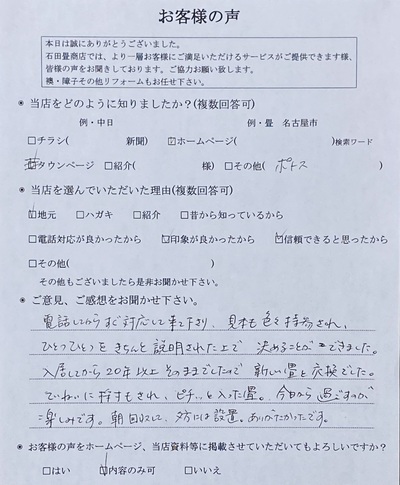 お客様の声
本日は誠にありがとうございました。
石田畳商店では、より一層お客様にご満足いただけるサービスがご提供できます様、
皆様の声をお聞きしております。ご協力お願い致します。
襖・障子その他リフォームもお任せ下さい。
◉ 当店をどのように知りましたか?(複数回答可)
例・中日 例・畳 名古屋市
□チラシ( 新聞) ☑ホームページ( )検索ワード
☑タウンページ □紹介( 様) □その他( ポトス )
◉ 当店を選んでいただいた理由(複数回答可)
☑地元 □ハガキ □紹介 □昔から知っているから
□電話対応が良かったから ☑印象が良かったから ☑信頼できると思ったから
□その他( )
その他もございましたら是非お聞かせ下さい。
◉ ご意見、ご感想をお聞かせ下さい。
電話してからすぐ対応して来て下さり、見本も色々持参され、
ひとつひとつをきちんと説明された上で 決めることができました。
入居してから20年以上そのままでしたので 新しい畳と交換でした。
でいねいに もされ、ピチッと入った畳。今日から過ごすのが
楽しみです。朝回収して、夕方には設置。ありがたかったです。
◉ お客様の声をホームページ、当店資料等に掲載させていただいてもよろしいですか?
□はい ☑内容のみ可 □いいえ